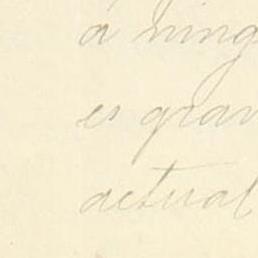 á ning
es gran
actual